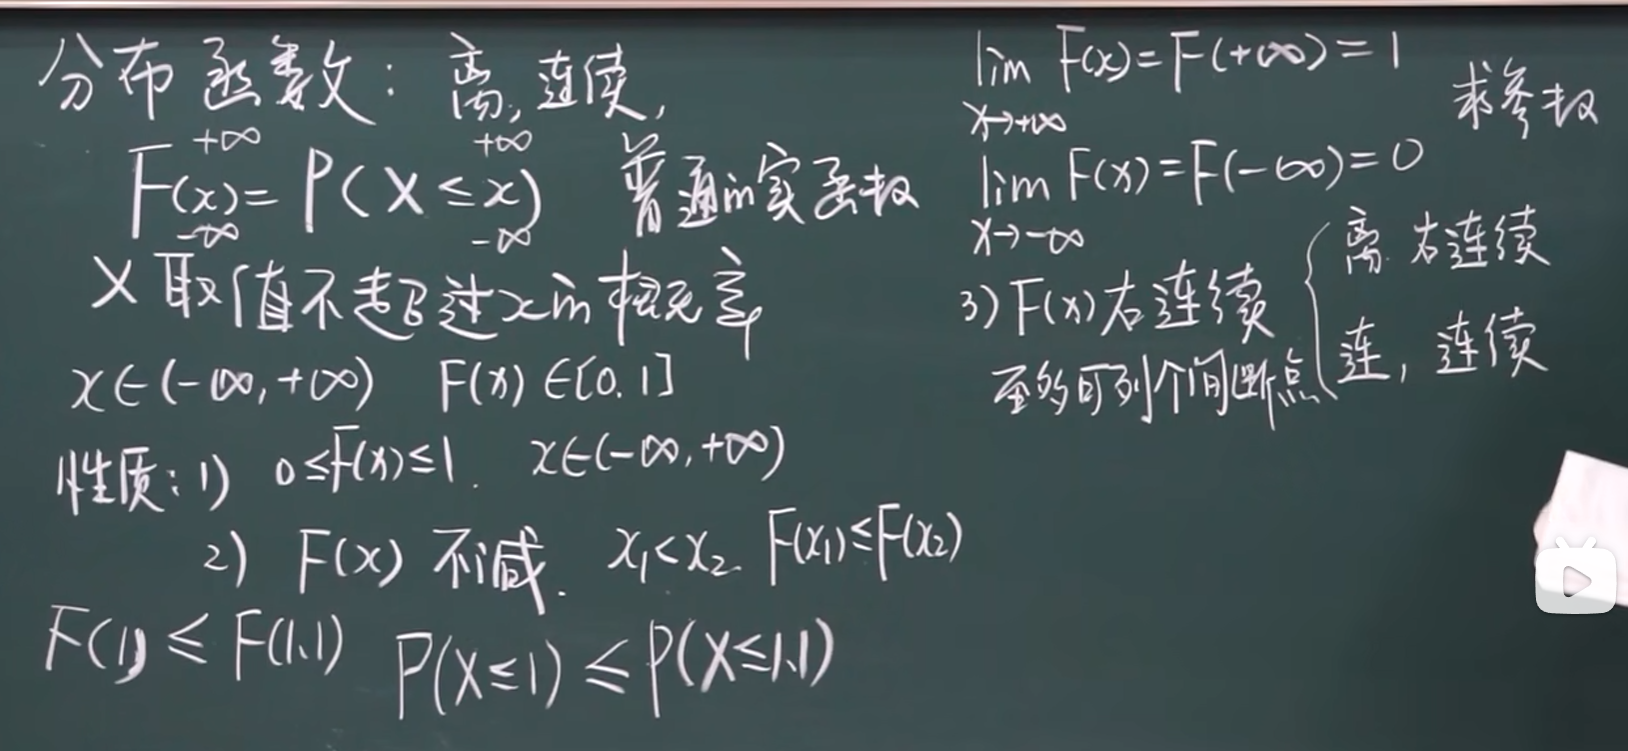 分布函数：离, 连续,
+∞ +∞
F(x)=P(X≤x) 普通的实函数
-∞ -∞
X取值不超过x的概率
x∈(-∞,+∞) F(x)∈[0.1]
性质：1) 0≤F(x)≤1. x∈(-∞,+∞)
2) F(x) 不减. x₁<x₂ F(x₁)≤F(x₂)
F(1)≤F(1.1) P(X≤1)≤P(X≤1.1)
lim F(x)=F(+∞)=1
x→+∞
求参数
lim F(x)=F(-∞)=0
x→-∞
3) F(x)右连续
离. 右连续
至多可列个间断点
连, 连续